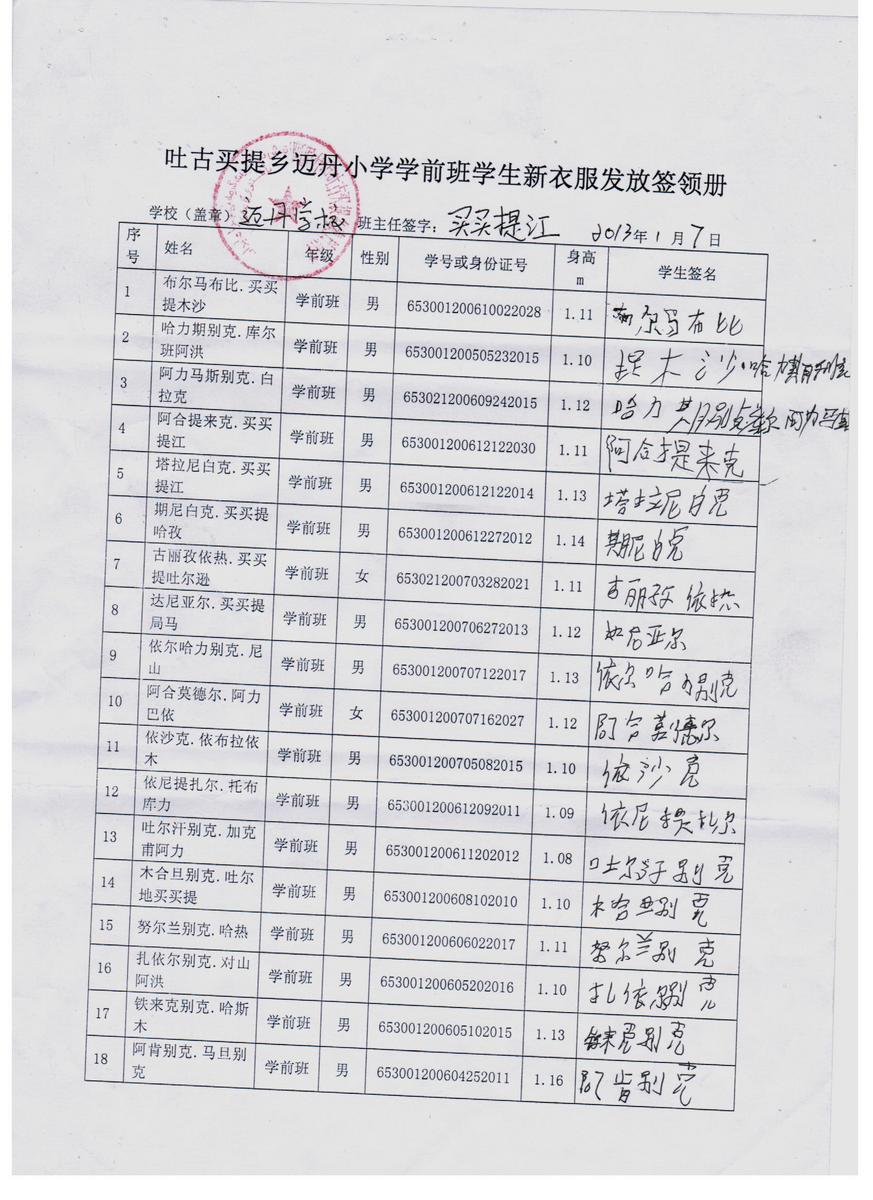 吐古买提乡迈丹小学学前班学生新衣服发放签领册
学校（盖章）迈丹学校 班主任签字：买买提江 2013年1月7日
序号 姓名 年级 性别 学号或身份证号 身高m 学生签名
1 布尔马布比.买买提木沙 学前班 男 653001200610022028 1.11 布尔马布比
2 哈力期别克.库尔班阿洪 学前班 男 653001200505232015 1.10 提木沙.哈力
3 阿力马斯别克.白拉克 学前班 男 653021200609242015 1.12 哈力期别克 阿力马
4 阿合提来克.买买提江 学前班 男 653001200612122030 1.11 阿合提来克
5 塔拉尼白克.买买提江 学前班 男 653001200612122014 1.13 塔拉尼白克
6 期尼白克.买买提哈孜 学前班 男 653001200612272012 1.14 期尼白克
7 古丽孜依热.买买提吐尔逊 学前班 女 653021200703282021 1.11 古丽孜依热
8 达尼亚尔.买买提局马 学前班 男 653001200706272013 1.12 尼亚尔
9 依尔哈力别克.尼山 学前班 男 653001200707122017 1.13 依尔哈力别克
10 阿合莫德尔.阿力巴依 学前班 女 653001200707162027 1.12 阿合莫德尔
11 依沙克.依布拉依木 学前班 男 653001200705082015 1.10 依沙克
12 依尼提扎尔.托布库力 学前班 男 653001200612092011 1.09 依尼提扎尔
13 吐尔汗别克.加克甫阿力 学前班 男 653001200611202012 1.08 吐尔汗别克
14 木合旦别克.吐尔地买买提 学前班 男 653001200608102010 1.10 木哈旦别克
15 努尔兰别克.哈热 学前班 男 653001200606022017 1.11 努尔兰别克
16 扎依尔别克.对山阿洪 学前班 男 653001200605202016 1.10 扎依尔别克
17 铁来克别克.哈斯木 学前班 男 653001200605102015 1.13 铁来克别克
18 阿肯别克.马旦别克 学前班 男 653001200604252011 1.16 阿肯别克